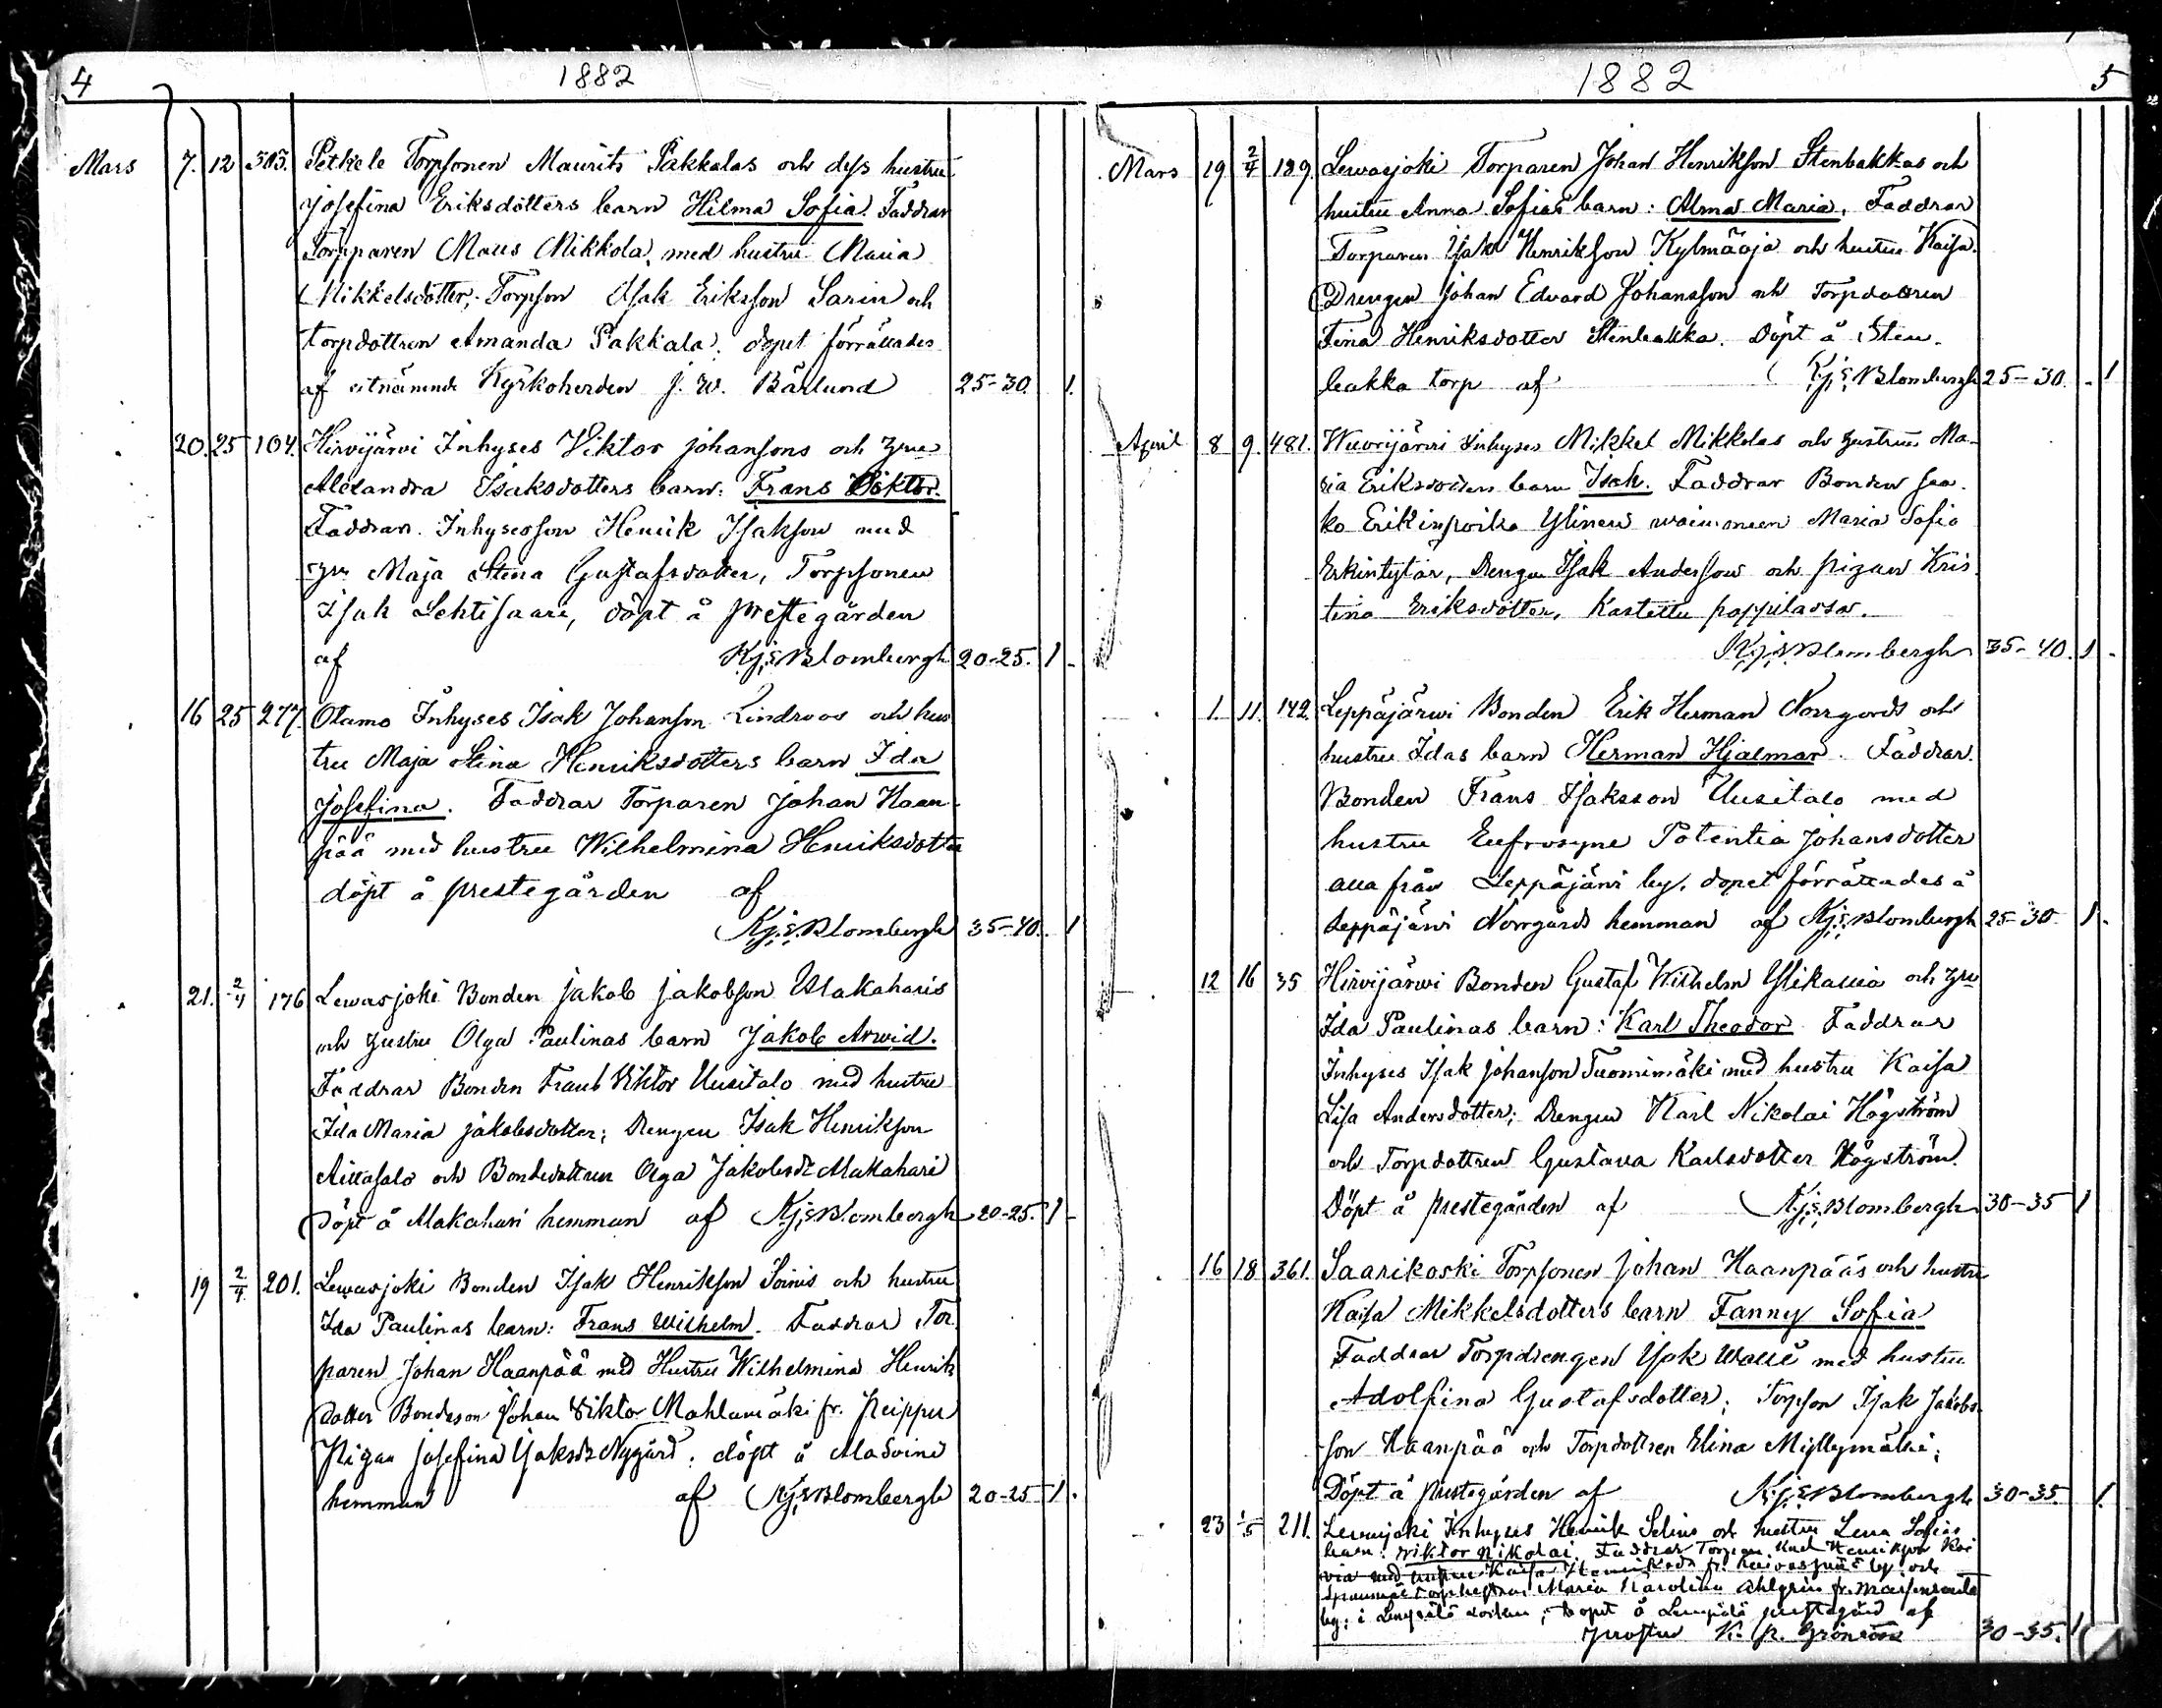 4 1882
Mars 7. 12 503. Petkele Torpsonen Maurits Pakkalas och dess hustru
Josefina Eriksdotters barn Hilma Sofia. Faddrar
Torpparen Maus Mikkola, med hustru Maria
Mikkelsdotter, Torpson Isak Eriksson Sarin och
torpdottren Amanda Pakkala. dopet förrättades
af utnämnde Kyrkoherden J. W. Bärlund 25-30. 1.
20. 25 104. Hirvijärvi Inhyses Viktor Johansons och hru
Alexandra Isaksdotters barn: Frans Viktor.
Faddrar. Inhyseson Henrik Isakson med
hru Maja Stina Gustafsdotter, Torpsonen
Isak Lehtisaari, döpt å prestegården
af Kj: s: Blombergh 20-25. 1
16 25 277. Otamo Inhyses Isak Johanson Lindroos och hus
tru Maja Stina Henriksdotters barn Ida
Josefina. Faddrar Torparen Johan Haan-
pää med hustru Wilhelmina Henriksdotter
döpt å prestegården af
Kj: s: Blombergh 35-40. 1
21. 2/4 176 Lewasjoki Bonden Jakob Jakobson Makaharis
och hustru Olga Paulinas barn Jakob Arwid.
Faddrar Bonden Frans Viktor Uusitalo med hustru
Ida Maria Jakobsdotter; Drengen Isak Henrikson
och Bondedottren Olga Jakobsdr Makahari
Döpt å Makahari hemman af Kj: s: Blombergh 20-25. 1
19 2/4 201. Lewasjoki Bonden Isak Henrikson Soinis och hustru
Ida Paulinas barn: Frans Wilhelm. Faddrar Tor
paren Johan Haanpää med Hustru Wilhelmina Henriks
dotter Bondeson Johan Viktor Mahlamäki fr.
Pigan Josefina Isaksdr Nygård. döpt å
hemman af Kj: s: Blombergh 20-25 1.
1882 5
Mars 19 2/4 189. Lewasjoki Torparen Johan Henrikson Stenbakkas och
hustru Anna Sofias barn: Alma Maria. Faddrar
Torparen Isak Henrikson Kylmäoja och hustru Kaisa.
Drengen Johan Edvard Johansson och Torpdottren
Fina Henriksdotter Stenbakka. Döpt å Sten-
bakka torp af Kj: s: Blombergh 25-30. 1
April 8 9. 481. Wuorijärvi Inhyses Mikkel Mikkolas och hustrus Ma-
ria Eriksdotters barn Isak. Faddrar Bonden Jaa-
ko Erikinpoika Ylinen waimoneen Maria Sofia
Erkintytär, Drengen Isak Anderson och pigan Kris
tina Eriksdotter, Kastettu pappilassa.
Kj: s: Blombergh 35-40. 1.
1. 11. 142. Leppäjärwi Bonden Erik Herman Norrgårds och
hustru Idas barn Herman Hjalmar. Faddrar.
Bonden Frans Isaksson Uusitalo med
hustru Eufrosyne Potentia Johansdotter
alla från Leppäjärvi by. dopet förrättades å
Leppäjärvi Norrgårds hemman af Kj: s: Blombergh 25-30. 1.
12 16 35 Hirvijärwi Bonden Gustaf Wilhelm Ylikallia och hru
Ida Paulinas barn: Karl Theodor Faddrar
Inhyses Isak Johanson Tuomimäki med hustru Kaisa
Lisa Andersdotter; Drengen Karl Nikolai Högström
och Torpdottren Gustava Karlsdotter Högström.
Döpt å prestegården af Kj: s: Blombergh 30-35 1
16 18 361. Saarikoski Torpsonen Johan Haanpääs och hustru
Kaisa Mikkelsdotters barn Fanny Sofia
Faddrar Torpdrengen Isak med hustru
Adolfina Gustafsdotter; Torpson Isak Jakobs-
son Haanpää och Torpdottren Elina Myllymäki;
Döpt å prestegården af Kj: s: Blombergh 30-35. 1.
23 1/5 211. Lewasjoki Inhyses Henrik Selins och hustru Lena Sofias
barn: Wiktor Nikolai. Faddrar Henrikson
med hustru Kaisa fr. by och
Maria Karolina Ahlgrén fr.
by; i Lempälä socken; döpt å Lempälä prestegård af
Prosten K. Grönroos 30-35. 1